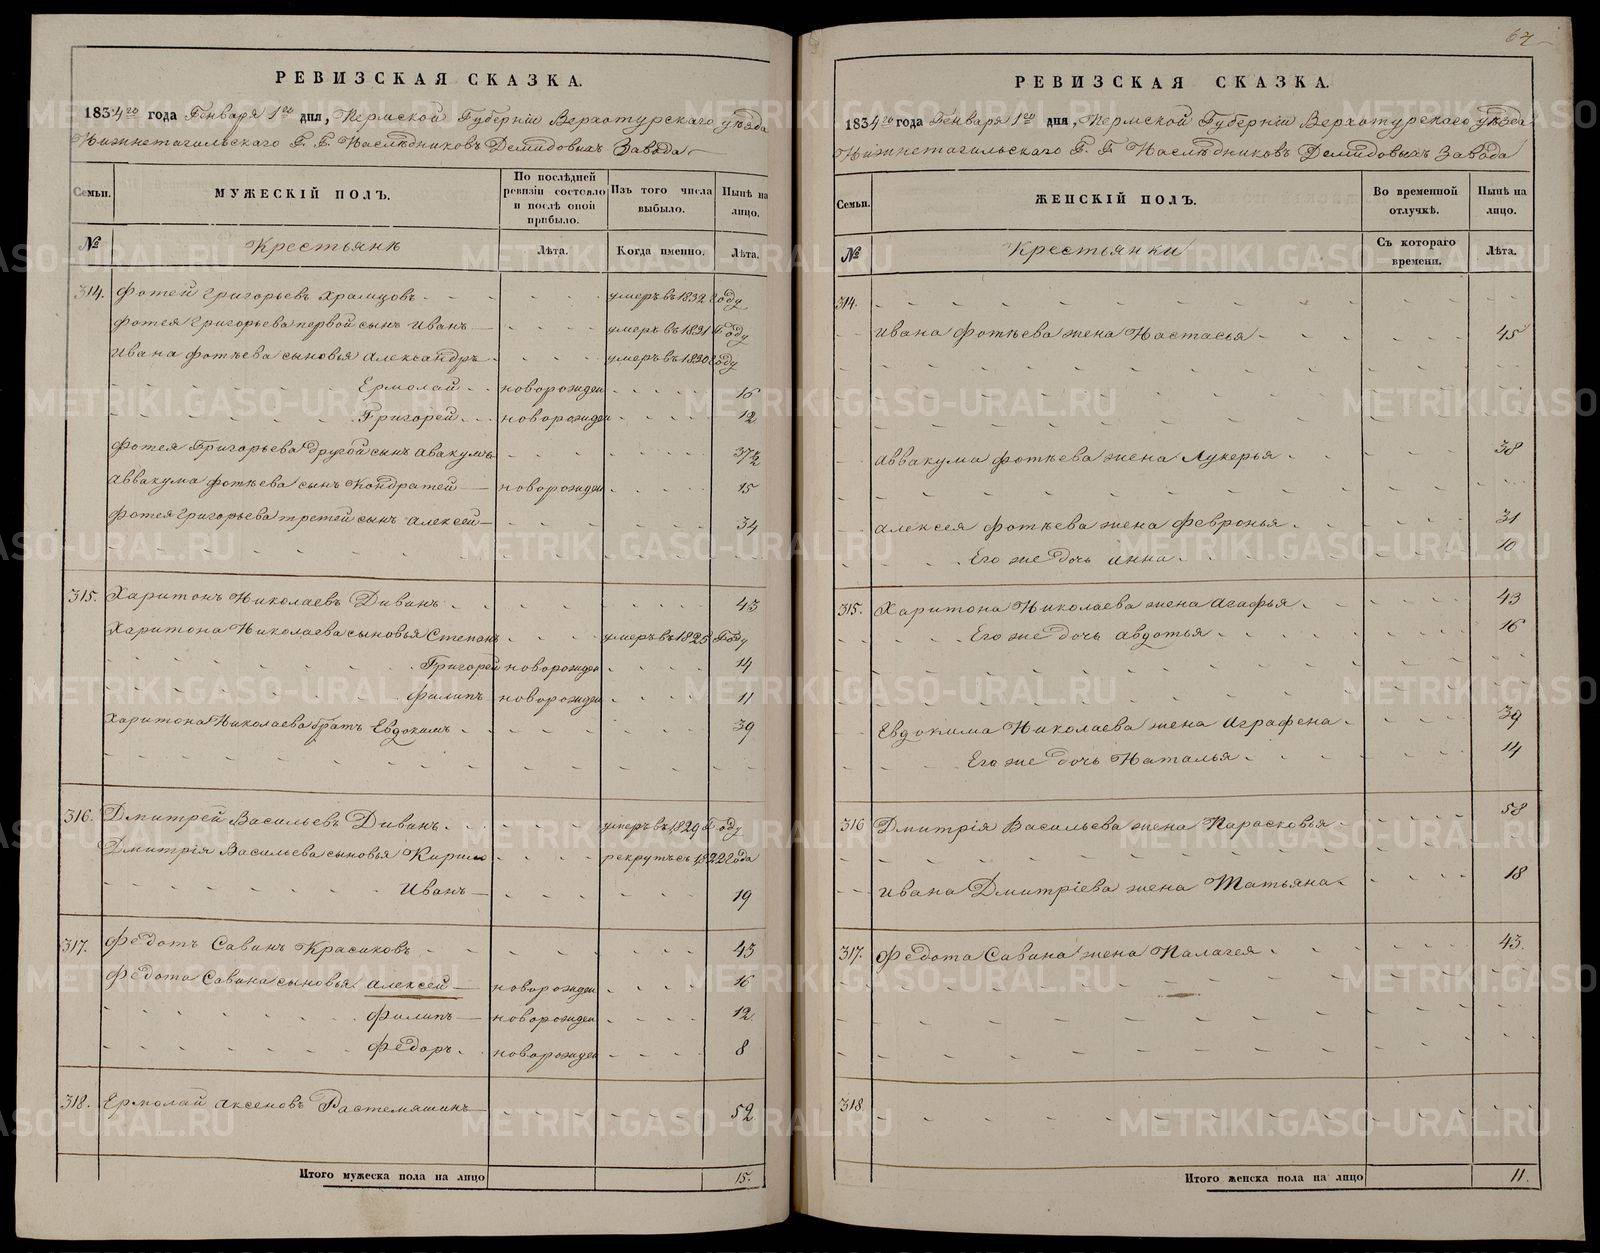 РЕВИЗСКАЯ СКАЗКА.
1834го года Генваря 1го дня, Пермской Губерніи Верхотурскаго уѣзда
Нижнетагильскаго Г. Г. Наслѣдниковъ Демидовыхъ Завода
Семьи. МУЖЕСКІЙ ПОЛЪ. По послѣдней ревизіи состояло и послѣ оной прибыло. Изъ того числа выбыло. Нынѣ на лицо.
№ Крестьянѣ Лѣта. Когда именно. Лѣта.
314. Фотей Григорьевъ Храмцовъ умеръ въ 1832 Году
Фотея Григорьева первой сынъ Иванъ умеръ въ 1831 Году
Ивана Фотѣева сыновья Александръ умеръ въ 1830 Году
Ермолай новорожден 16
Григорей новорожден 12
Фотея Григорьева другой сынъ Авакумъ
Аввакума Фотѣева сынъ Кондратей новорожден 15
Фотея Григорьева третей сынъ Алексей 34
315. Харитонъ Николаевъ Диванъ 43
Харитона Николаева сыновья Степанъ умеръ въ 1825 Году
Григорей новорожден 14
Филипъ новорожден 11
Харитона Николаева братъ Евдокимъ 39
316. Дмитрей Васильевъ Диванъ умеръ въ 1829 Году
Дмитрія Васильева сыновья Кирило рекрутъ съ 1822 Года
Иванъ 19
317. Федотъ Савинъ Красиковъ 43
Федота Савина сыновья Алексей новорожден 16
Филипъ новорожден 12
Федоръ новорожден 8
318. Ермолай Аксеновъ Растемяшинъ 52
Итого мужеска пола на лицо 15.
67
РЕВИЗСКАЯ СКАЗКА.
1834го года Генваря 1го дня, Пермской Губерніи Верхотурскаго уѣзда
Нижнетагильскаго Г. Г. Наслѣдниковъ Демидовыхъ Завода
Семьи. ЖЕНСКІЙ ПОЛЪ. Во временной отлучкѣ. Нынѣ на лицо.
№ Крестьянки Съ котораго времени. Лѣта.
314.
Ивана Фотѣева жена Настасья 45
Аввакума Фотѣева жена Лукерья 38
Алексея Фотѣева жена Февронья 31
Его же дочь Анна 10
315. Харитона Николаева жена Агафья 43
Его же дочь Авдотья 16
Евдокима Николаева жена Аграфена 39
Его же дочь Наталья 14
316 Дмитрія Васильева жена Парасковья 58
Ивана Дмитріева жена Татьяна 18
317. Федота Савина жена Палагея 43.
318.
Итого женска пола на лицо 11.
METRIKI.GASO-URAL.RU